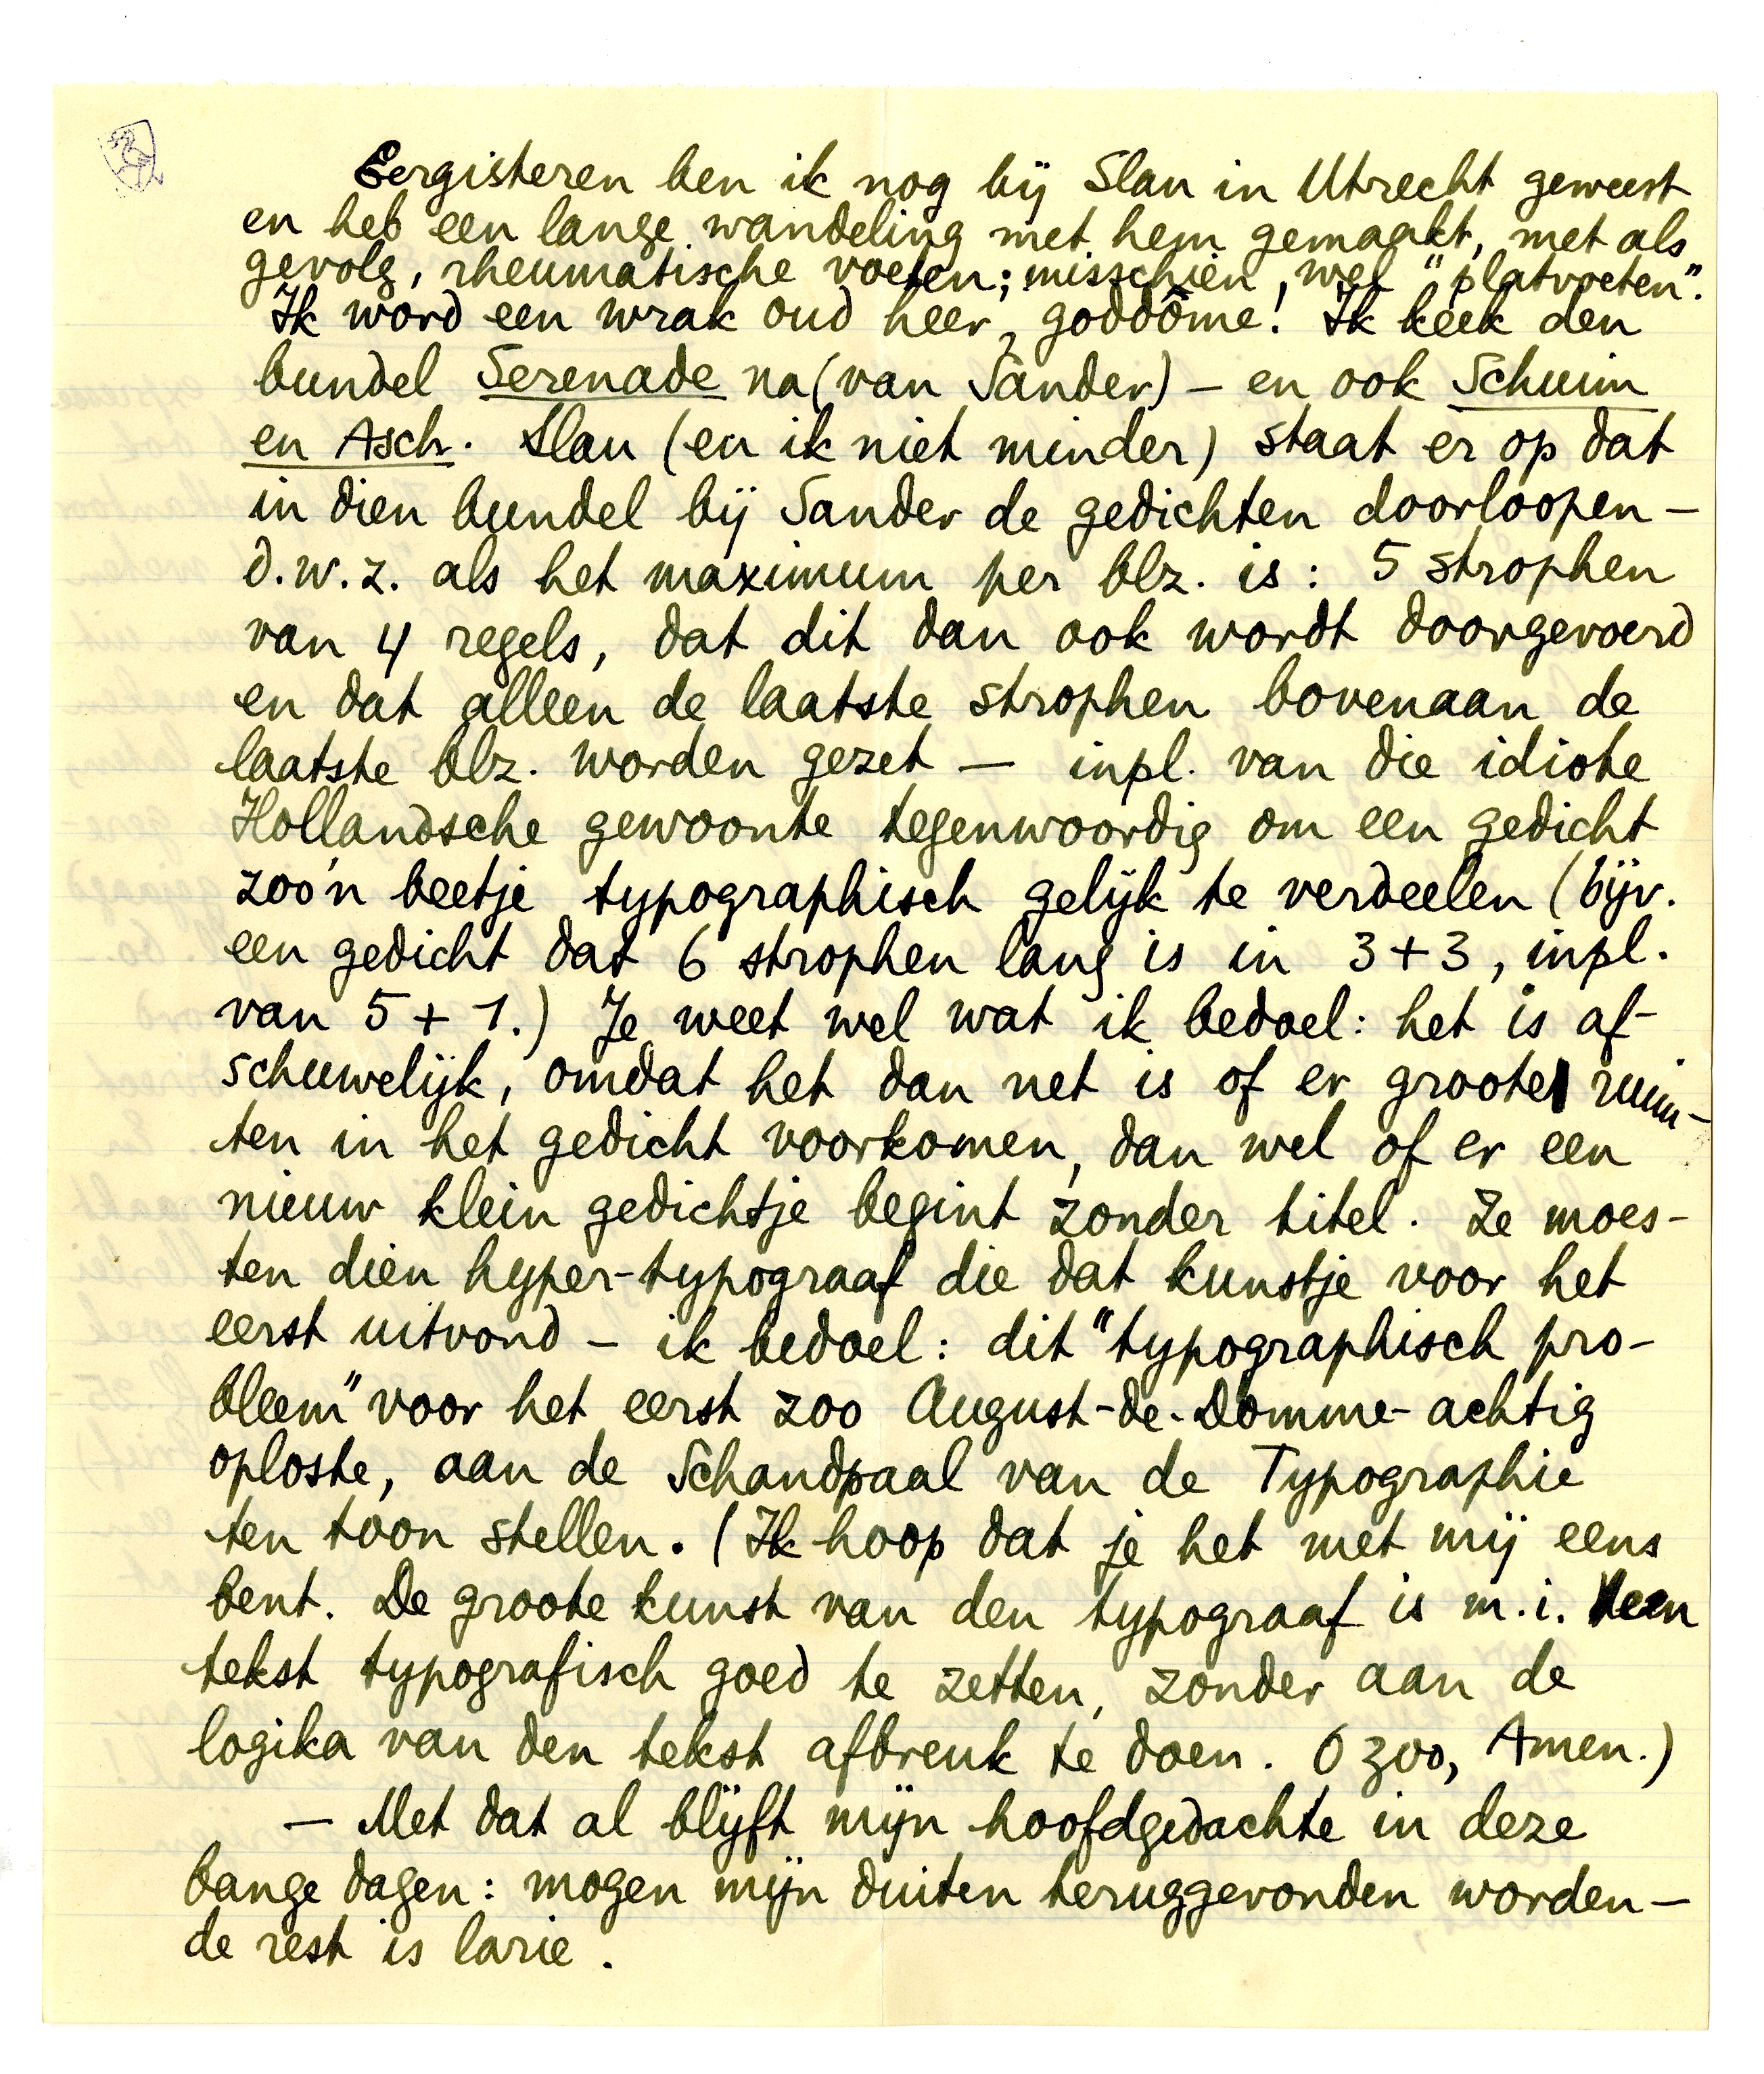 Eergisteren ben ik nog bij Slau in Utrecht geweest
en heb een lange wandeling met hem gemaakt, met als
gevolg, rheumatische voeten; misschien, wel "platvoeten".
Ik word een wrak oud heer, goddôme! Ik keek den
bundel Serenade na (van Sander) – en ook Schuim
en Asch. Slau (en ik niet minder) staat er op dat
in dien bundel bij Sander de gedichten doorloopen –
d.w.z. als het maximum per blz. is: 5 strophen
van 4 regels, dat dit dan ook wordt doorgevoerd
en dat alleen de laatste strophen bovenaan de
laatste blz. worden gezet – inpl. van die idiote
Hollandsche gewoonte tegenwoordig om een gedicht
zoo'n beetje typographisch gelijk te verdeelen (bijv.
een gedicht dat 6 strophen lang is in 3+3, inpl.
van 5+1.) Je weet wel wat ik bedoel: het is af-
schuwelijk, omdat het dan net is of er groote ruim-
ten in het gedicht voorkomen, dan wel of er een
nieuw klein gedichtje begint zonder titel. Ze moes-
ten dien hyper-typograaf die dat kunstje voor het
eerst uitvond – ik bedoel: dit "typographisch pro-
bleem" voor het eerst zoo August-de-Domme-achtig
oploste, aan de Schandpaal van de Typographie
ten toon stellen. (Ik hoop dat je het met mij eens
bent. De groote kunst van den typograaf is m.i. een
tekst typografisch goed te zetten, zonder aan de
logika van den tekst afbreuk te doen. O zoo, Amen.)
– Met dat al blijft mijn hoofdgedachte in deze
bange dagen: mogen mijn duiten teruggevonden worden –
de rest is larie.